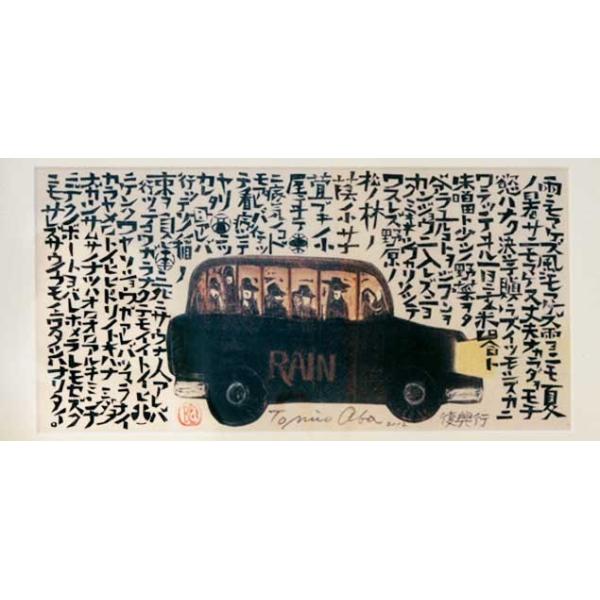 雨ニモマケズ風モマケズ雪ニモ夏
ノ暑サニモマケズ丈夫ナカラダヲモチ
慾ハナク決シテ瞋ラズイツモシズカニ
ワラッテヰル一日ニ玄米四合ト
味噌ト少シノ野菜ヲタ
ベアラユルコトヲジブンヲ
カンジョウニ入レズニヨ
クミキキシワカリソシテ
ワスレズ野原ノ
松ノ林ノ
蔭ノ小サナ
萱ブキノ小
屋ニヰテ東
ニ病気ノコド
モアレバ行ッ
テ看病シテ
ヤリ西ニツ
カレタ母アレバ
行ッテソノ稲ノ
束ヲ負ヒ南ニ死ニサウナ人アレバ
行ッテコワガラナクテモイイトイヒ北
ニケンクヮヤソショウガアレバツマラナイ
カラヤメロトイヒヒドリノトキハナミダヲ
ナガシサムサノナツハオロオロアルキミンナ
ニデクノボートヨバレホメラレモセズク
ニモサレズサウイフモノニワタシハナリタイ。
RAIN
Tomio Aba 2012
復興行